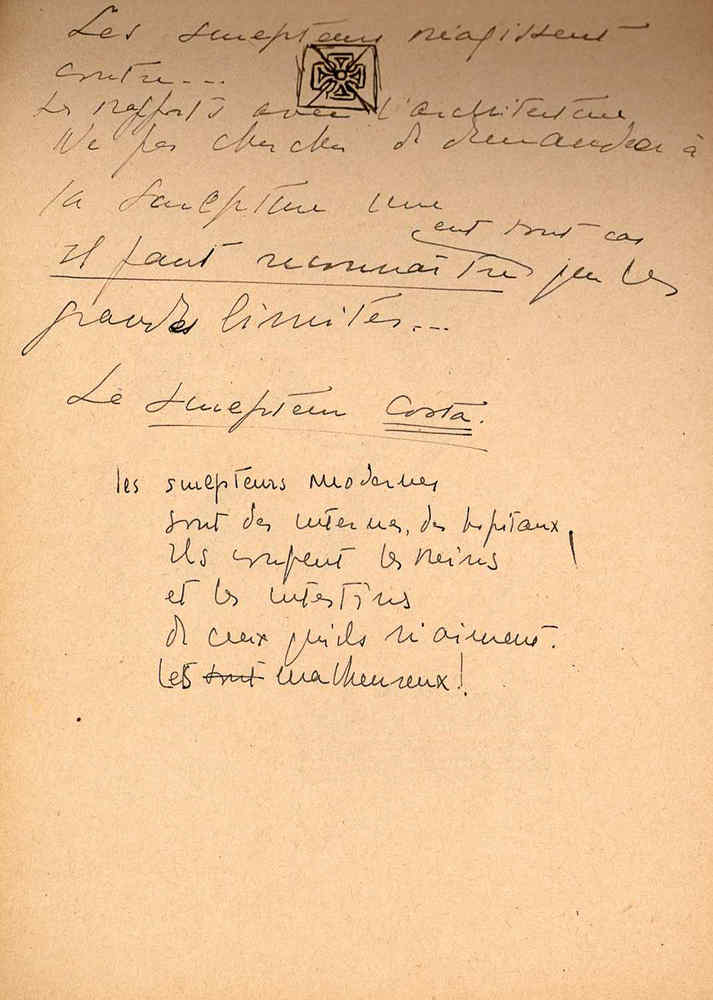 Les sculpteurs réagissent
contre...
Les rapports avec l'architecture
Ne pas chercher de demander à
la sculpture une
en tout cas
Il faut reconnaître les
grandes limites...
Le sculpteur Costa.
les sculpteurs modernes
sont des internes, des hopitaux!
Ils coupent les reins
et les intestins
de ceux qu'ils n'aiment.
Les sont malheureux!